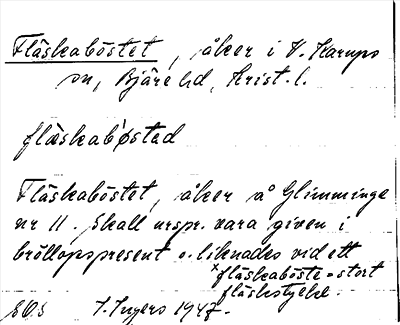 Fläskaböstet, åker i V. Karups
sn, Bjäre hd, Krist. l.
flæskabʹøsted
Fläskaböstet, åker å Glimminge
nr 11. Skall urspr. vara given i
bröllopspresent o. liknades vid ett
x fläskaböste = stort
fläskstycke.
I. Ingers 1947.